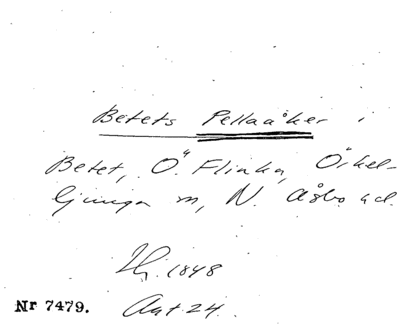 Betets Pellaåker i
Betet, Ö. Flinka, Örkel-
ljunga sn, N. Åsbo hd.
Lh. 1848
Akt 24.
Nr 7479.